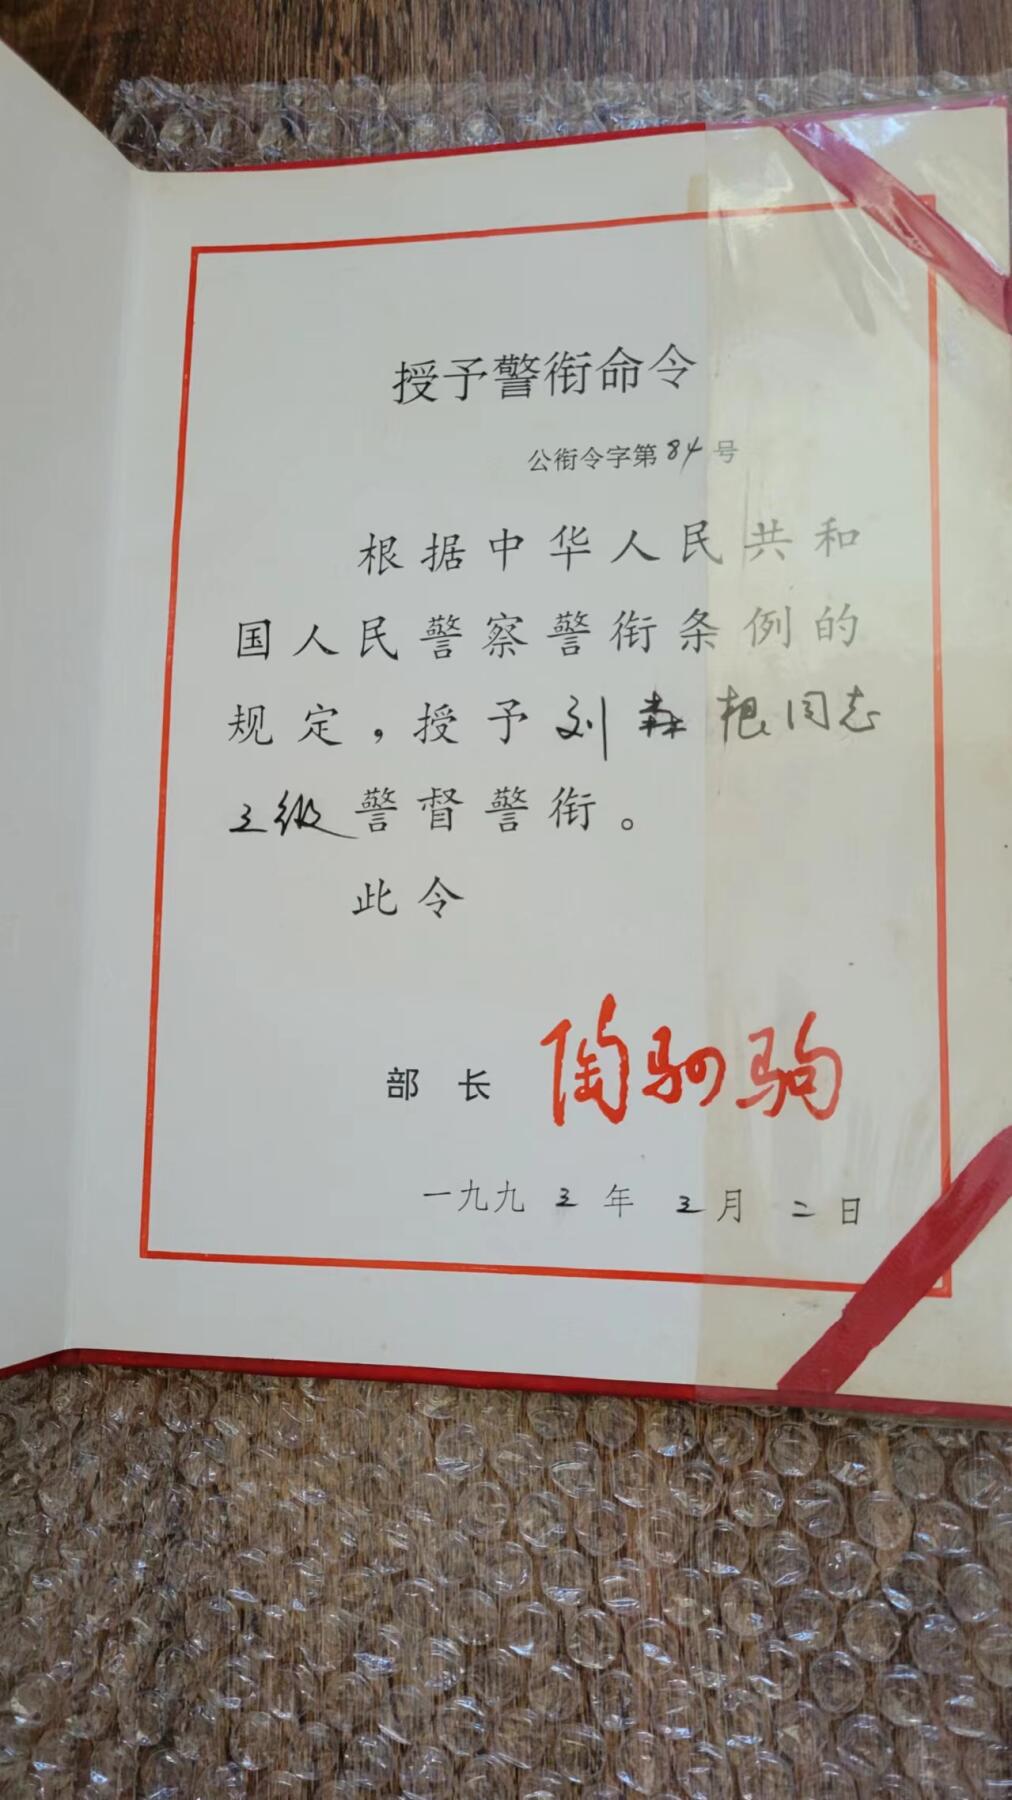 授予警衔命令
公衔令字第84号
根据中华人民共和
国人民警察警衔条例的
规定，授予刘森根同志
三级警督警衔。
此令
部长 陶驷驹
一九九三年三月二日